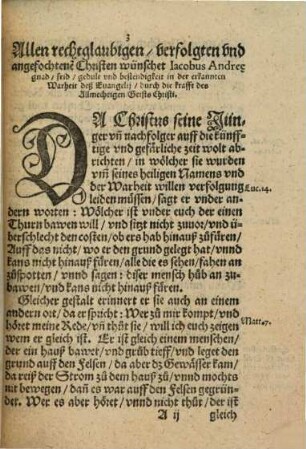 3
Allen rechtglaubigen / verfolgten vnd
angefochtenẽ Christen wünschet Jacobus Andreę
gnad / frid / gedult vnd bestendigkeit in der erkannten
Warheit deß Euangelij / durch die krafft des
Allmechtigen Geists Christi.
DA Christus seine Jün-
ger vñ nachfolger auff die künff-
tige vnd gefärliche zeit wolt ab-
richten / in wölcher sie wurden
vm̃ seines heiligen Namens vnd
der Warheit willen verfolgung
leiden müssen / sagt er vnder an-
Luc. 14.
dern worten: Wölcher ist vnder euch der einen
Thurn bawen will / vnd sitzt nicht zuuor / vnd ü-
berschlecht den costen / ob ers hab hinauß zůfüren /
Auff das nicht / wo er den grund gelegt hat / vnnd
kans nicht hinauß füren / alle die es sehen / fahen an
zůspotten / vnnd sagen: diser mensch hůb an zu-
bawen / vnd kans nicht hinauß füren.
Gleicher gestalt erinnert er sie auch an einem
andern ort / da er spricht: Wer zů mir kompt / vnd
höret meine Rede / vñ thůt sie / will ich euch zeigen
Matt. 7.
wem er gleich ist. Er ist gleich einem menschen /
der ein hauß bawet / vnd grůb tieff / vnd leget den
grund auff den Felsen / da aber dz Gewässer kam /
da reiß der Strom zů dem hauß zů / vnnd mochts
nit bewegen / dañ es war auff den Felsen gegrün-
det. Wer es aber höret / vnnd nicht thůt / der ist
A ij
gleich